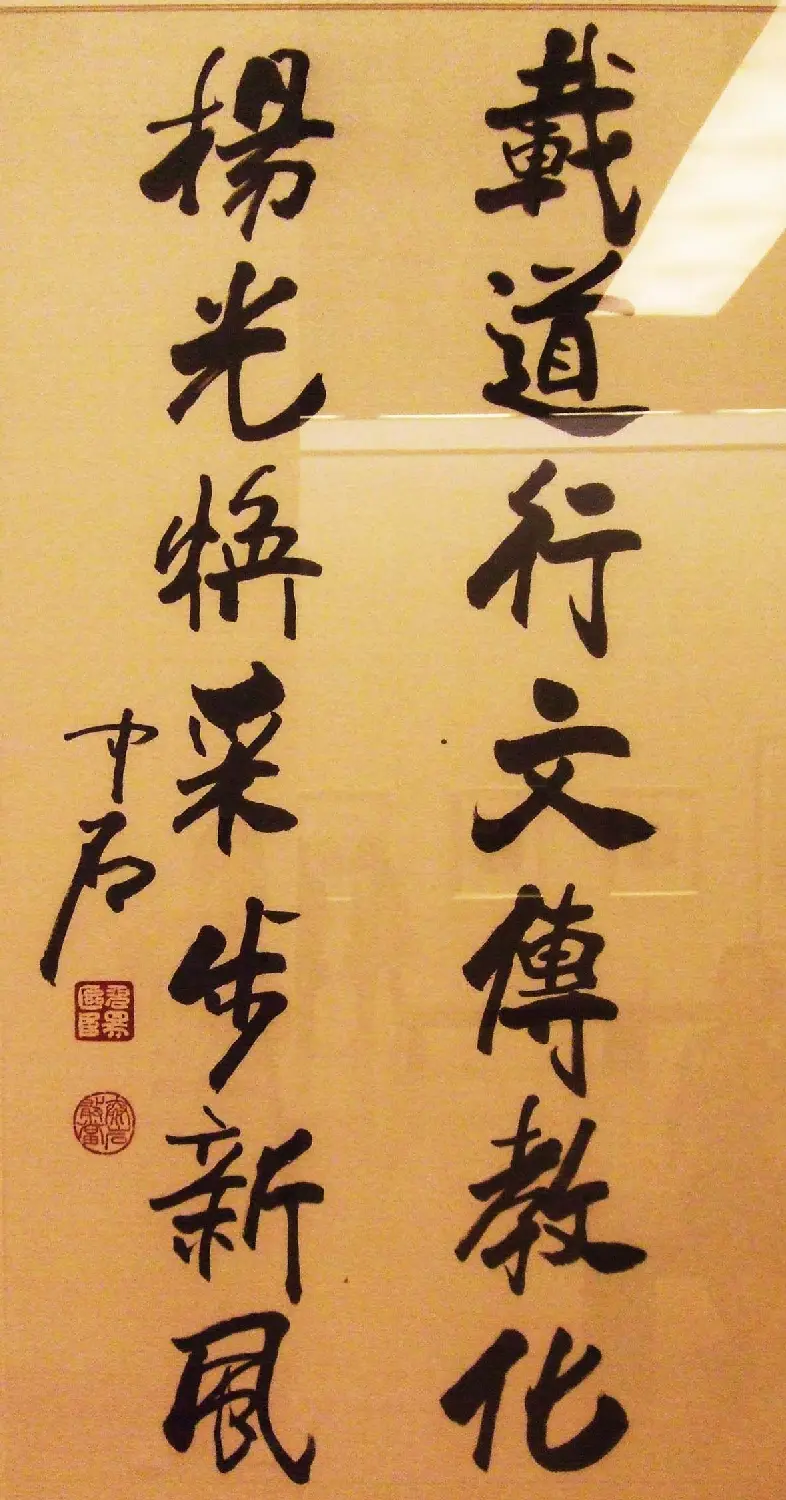 載道行文傳教化
楊光煥采步新風
中石